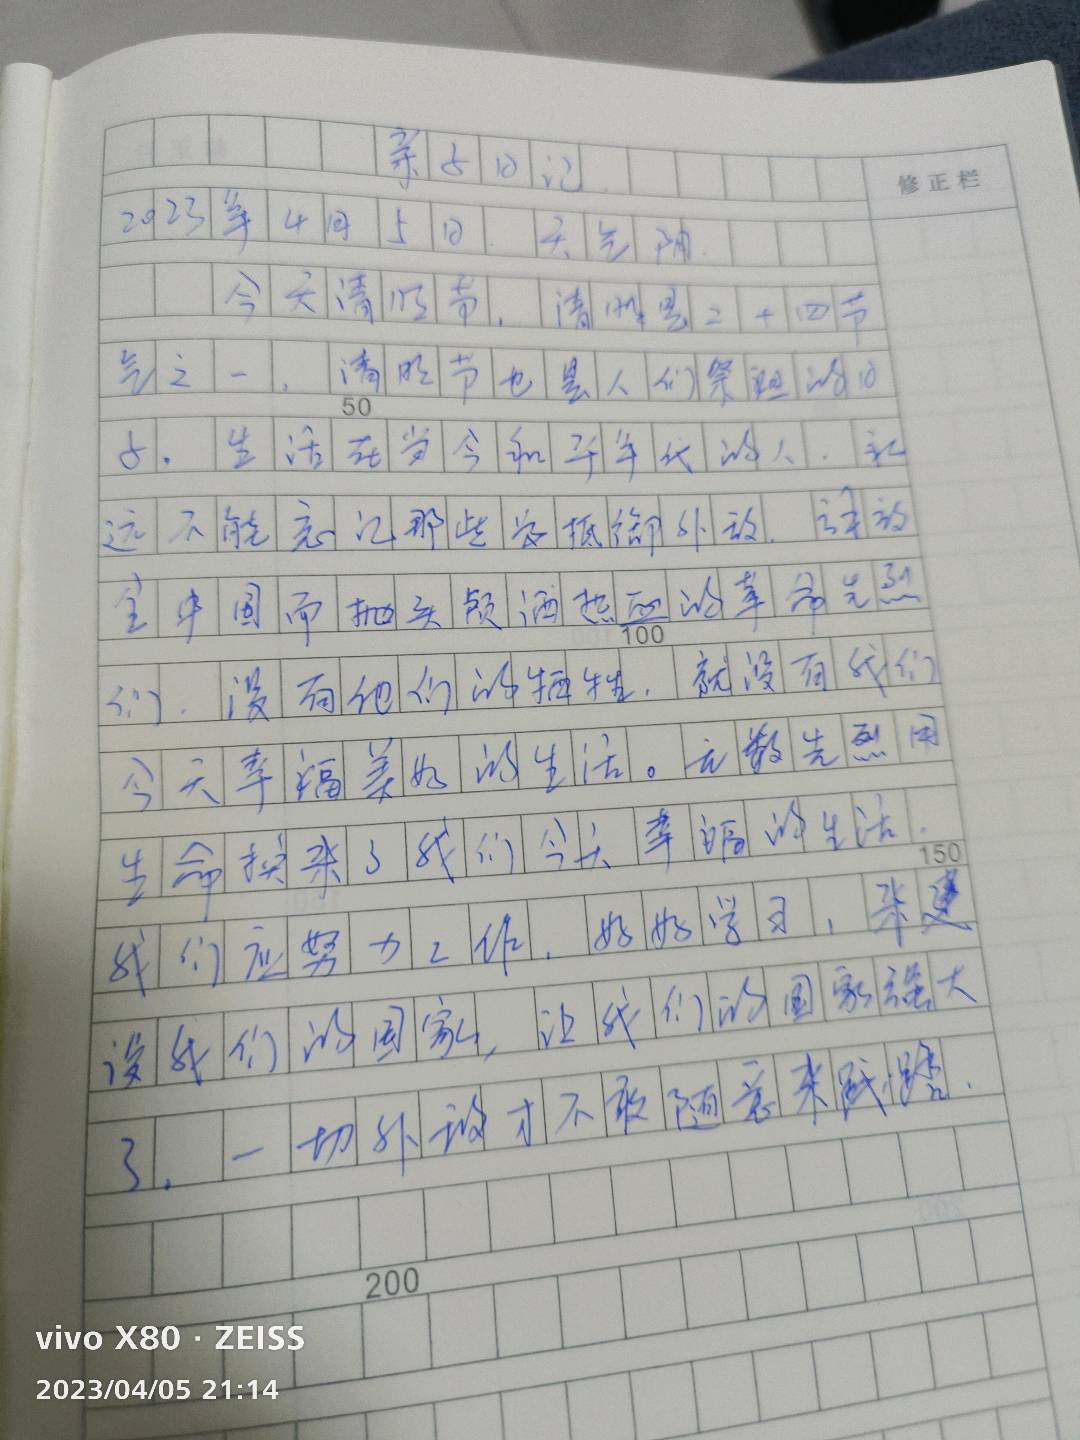 亲子日记
修正栏
2023年4月5日. 天气阴.
今天清明节. 清明是二十四节
气之一. 清明节也是人们祭祖的日
50
子. 生活在当今和平年代的人. 永
远不能忘记那些为抵御外敌. 解放
全中国而抛头颅洒热血的革命先烈
100
们. 没有他们的牺牲. 就没有我们
今天幸福美好的生活。无数先烈用
生命换来了我们今天幸福的生活.
150
我们应努力工作. 好好学习, 来建
设我们的国家, 让我们的国家强大
了. 一切外敌才不敢随意来践踏.
200
vivo X80 · ZEISS
2023/04/05 21:14